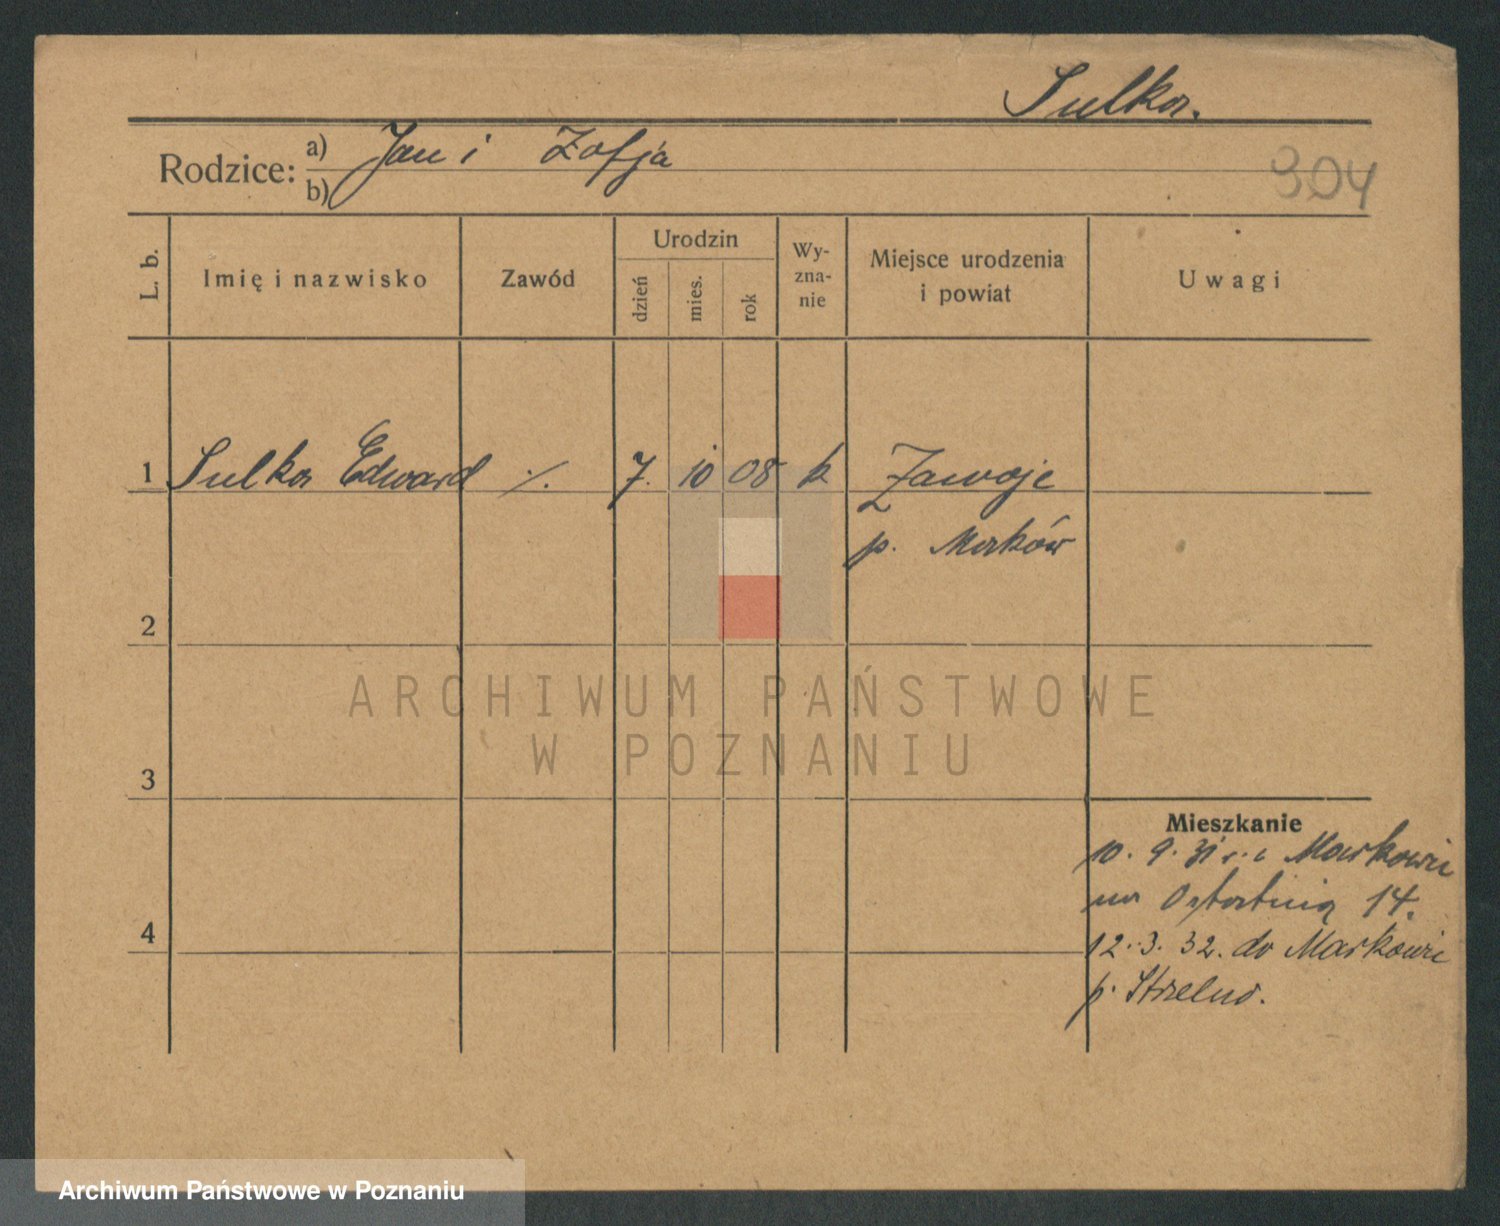 Sulka.
Rodzice: a) Jan i Zofja
b)
304
L. b.
Imię i nazwisko
Zawód
Urodzin
dzień
mies.
rok
Wy-
zna-
nie
Miejsce urodzenia
i powiat
Uwagi
1 Sulka Edward ./. 7. 10 08 k Zawoje
p. Maków
2
ARCHIWUM PAŃSTWOWE
W POZNANIU
3
Mieszkanie
10. 9. 31 r. z Markowic
na Ostatnią 14.
4
12. 3. 32. do Markowic
p. Strzelno.
Archiwum Państwowe w Poznaniu